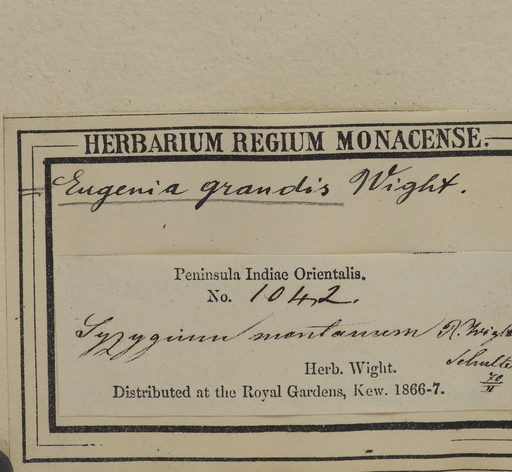 HERBARIUM REGIUM MONACENSE.
Eugenia grandis Wight.
Peninsula Indiae Orientalis.
No. 1042.
Syzygium montanum R. Wight
Herb. Wight. Schulte
Distributed at the Royal Gardens, Kew. 1866-7.